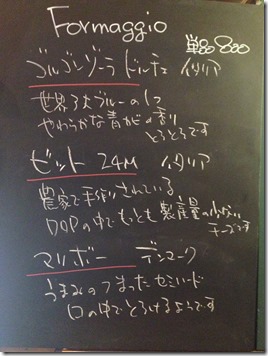 Formaggio
単品 800
ゴルゴンゾーラ ドルチェ イタリア
世界3大ブルーの1つ
やわらかな青かびの香り
とろとろです
ビット 24M イタリア
農家で手作りされている
DOPの中でもっとも製産量の少ない
チーズです
マリボー デンマーク
うまみのつまったセミハード
口の中でとろけるようです